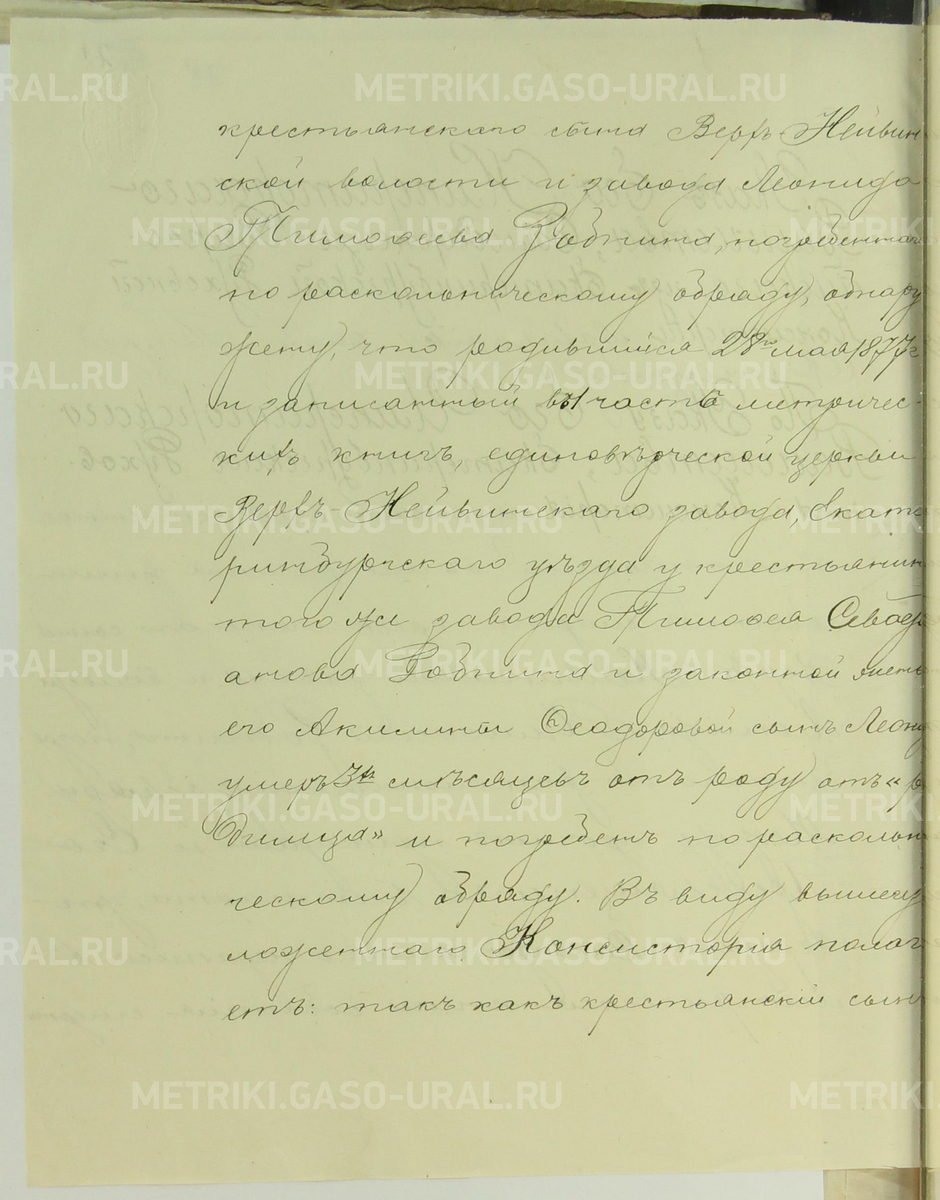 крестьянскаго сына Верхъ-Нейвин
ской волости и завода Леонида
Тимоѳеева Зобнина, погребеннаго
по раскольническому обряду, обнару
жену, что родившійся 28го мая 1877 г.
и записанный въ 1 часть метричес-
кихъ книгъ, единовѣрческой церкви
Верхъ-Нейвинскаго завода, Екате
ринбургскаго уѣзда у крестьянин
того же завода Тимоѳея
Зобнина и законной жены
его Акилины Ѳеодоровой сынъ Леонид
умеръ 3хъ мѣсяцевъ отъ роду отъ „ро
димца" и погребенъ по расколни
ческому обряду. Въ виду вышеиз
ложеннаго Консисторія полаг
етъ: такъ какъ крестьянскій сынъ
METRIKI.GASO-URAL.RU